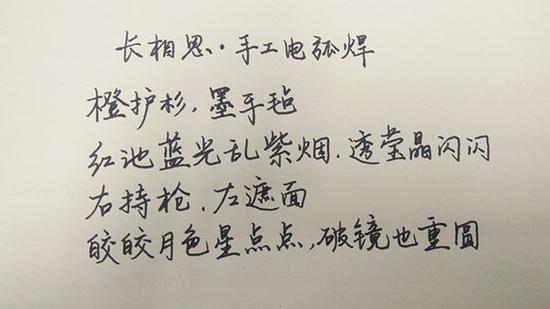 长相思·手工电弧焊
橙护衫,墨手毡
红池蓝光乱紫烟.透莹晶闪闪
右持枪.左遮面
皎皎月色星点点,破镜也重圆